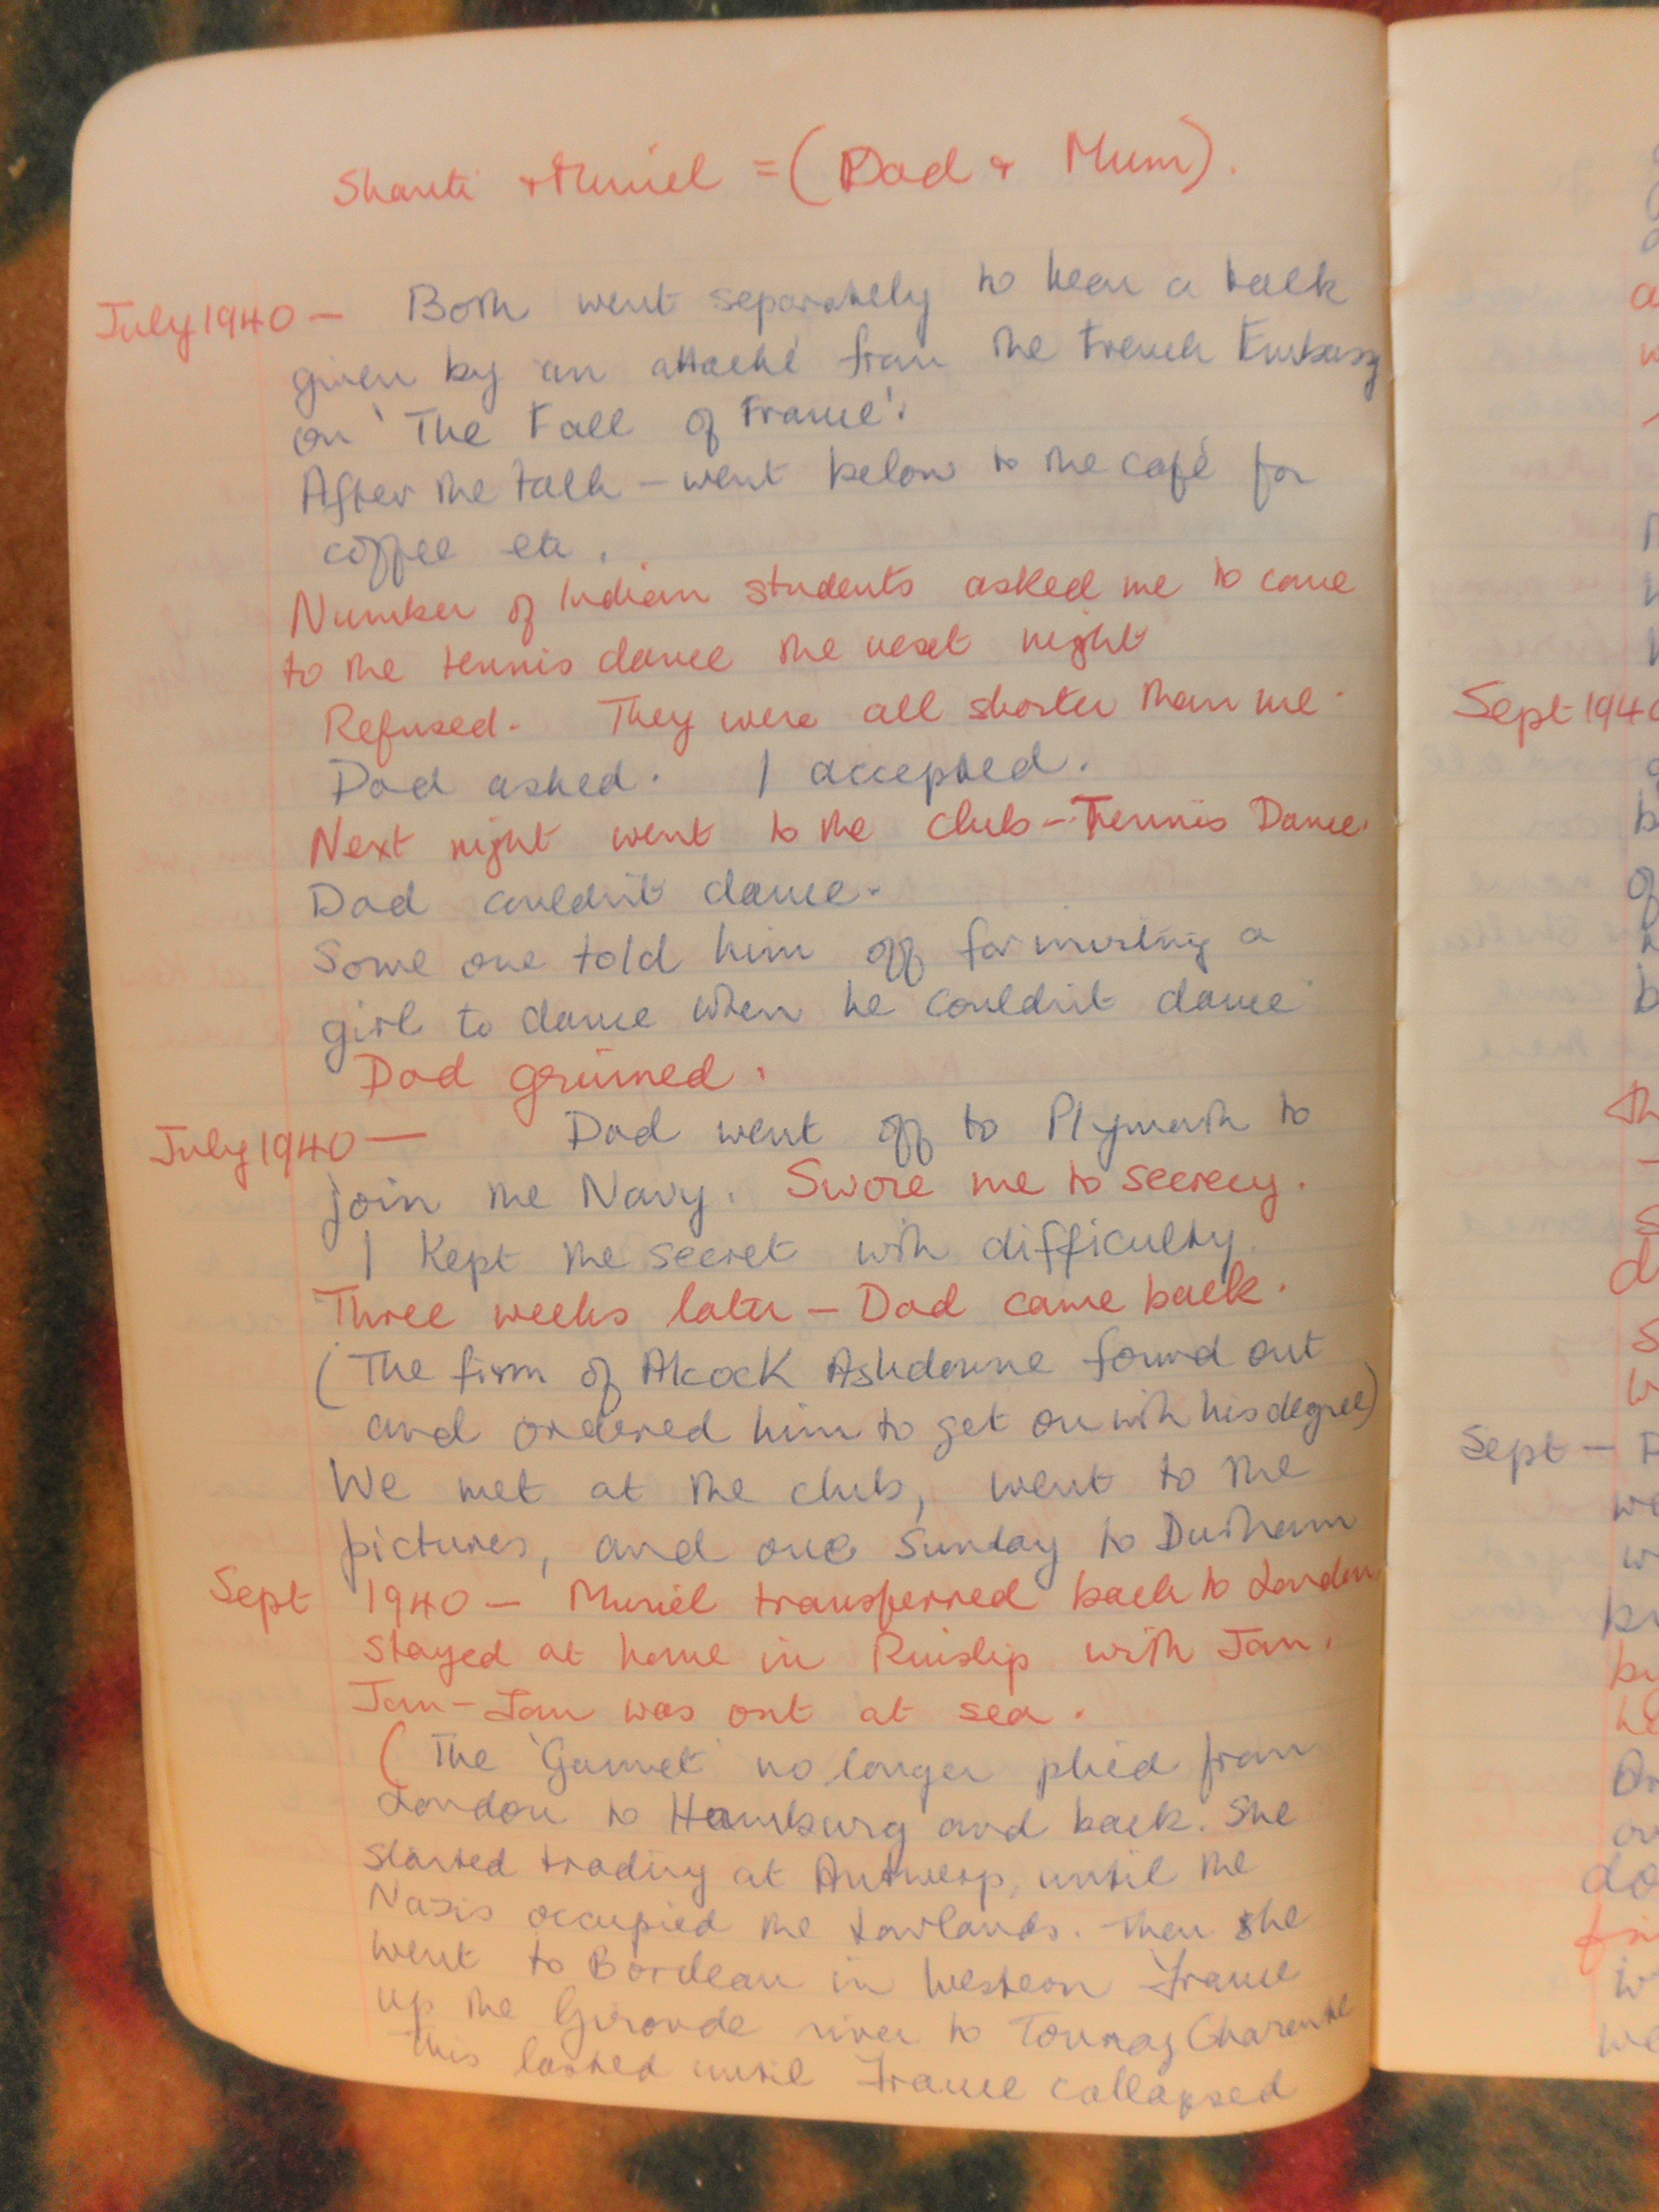 Shanti + Muriel = (Dad + Mum).
July 1940 — Both went separately to hear a talk
given by an attaché from the French Embassy
on 'The Fall of France'.
After the talk — went below to the café for
coffee etc.
Number of Indian students asked me to come
to the tennis dance the next night
Refused. They were all shorter than me.
Dad asked. I accepted.
Next night went to the club — Tennis Dance.
Dad couldn't dance.
Some one told him off for inviting a
girl to dance when he couldn't dance
Dad grinned.
July 1940 — Dad went off to Plymouth to
join the Navy. Swore me to secrecy.
I kept the secret with difficulty.
Three weeks later — Dad came back.
(The firm of Alcock Ashdowne found out
and ordered him to get on with his degree)
We met at the club, went to the
pictures, and one Sunday to Durham
Sept 1940 — Muriel transferred back to London.
Stayed at home in Ruislip with Jan.
Jan-Jan was out at sea.
(The 'Gannet' no longer plied from
London to Hamburg and back. She
started trading at Antwerp, until the
Nazis occupied the Lowlands. Then she
went to Bordeau in Western France
up the Gironde river to Tonnay Charente
This lasted until France collapsed
Sept 1940
Sept —